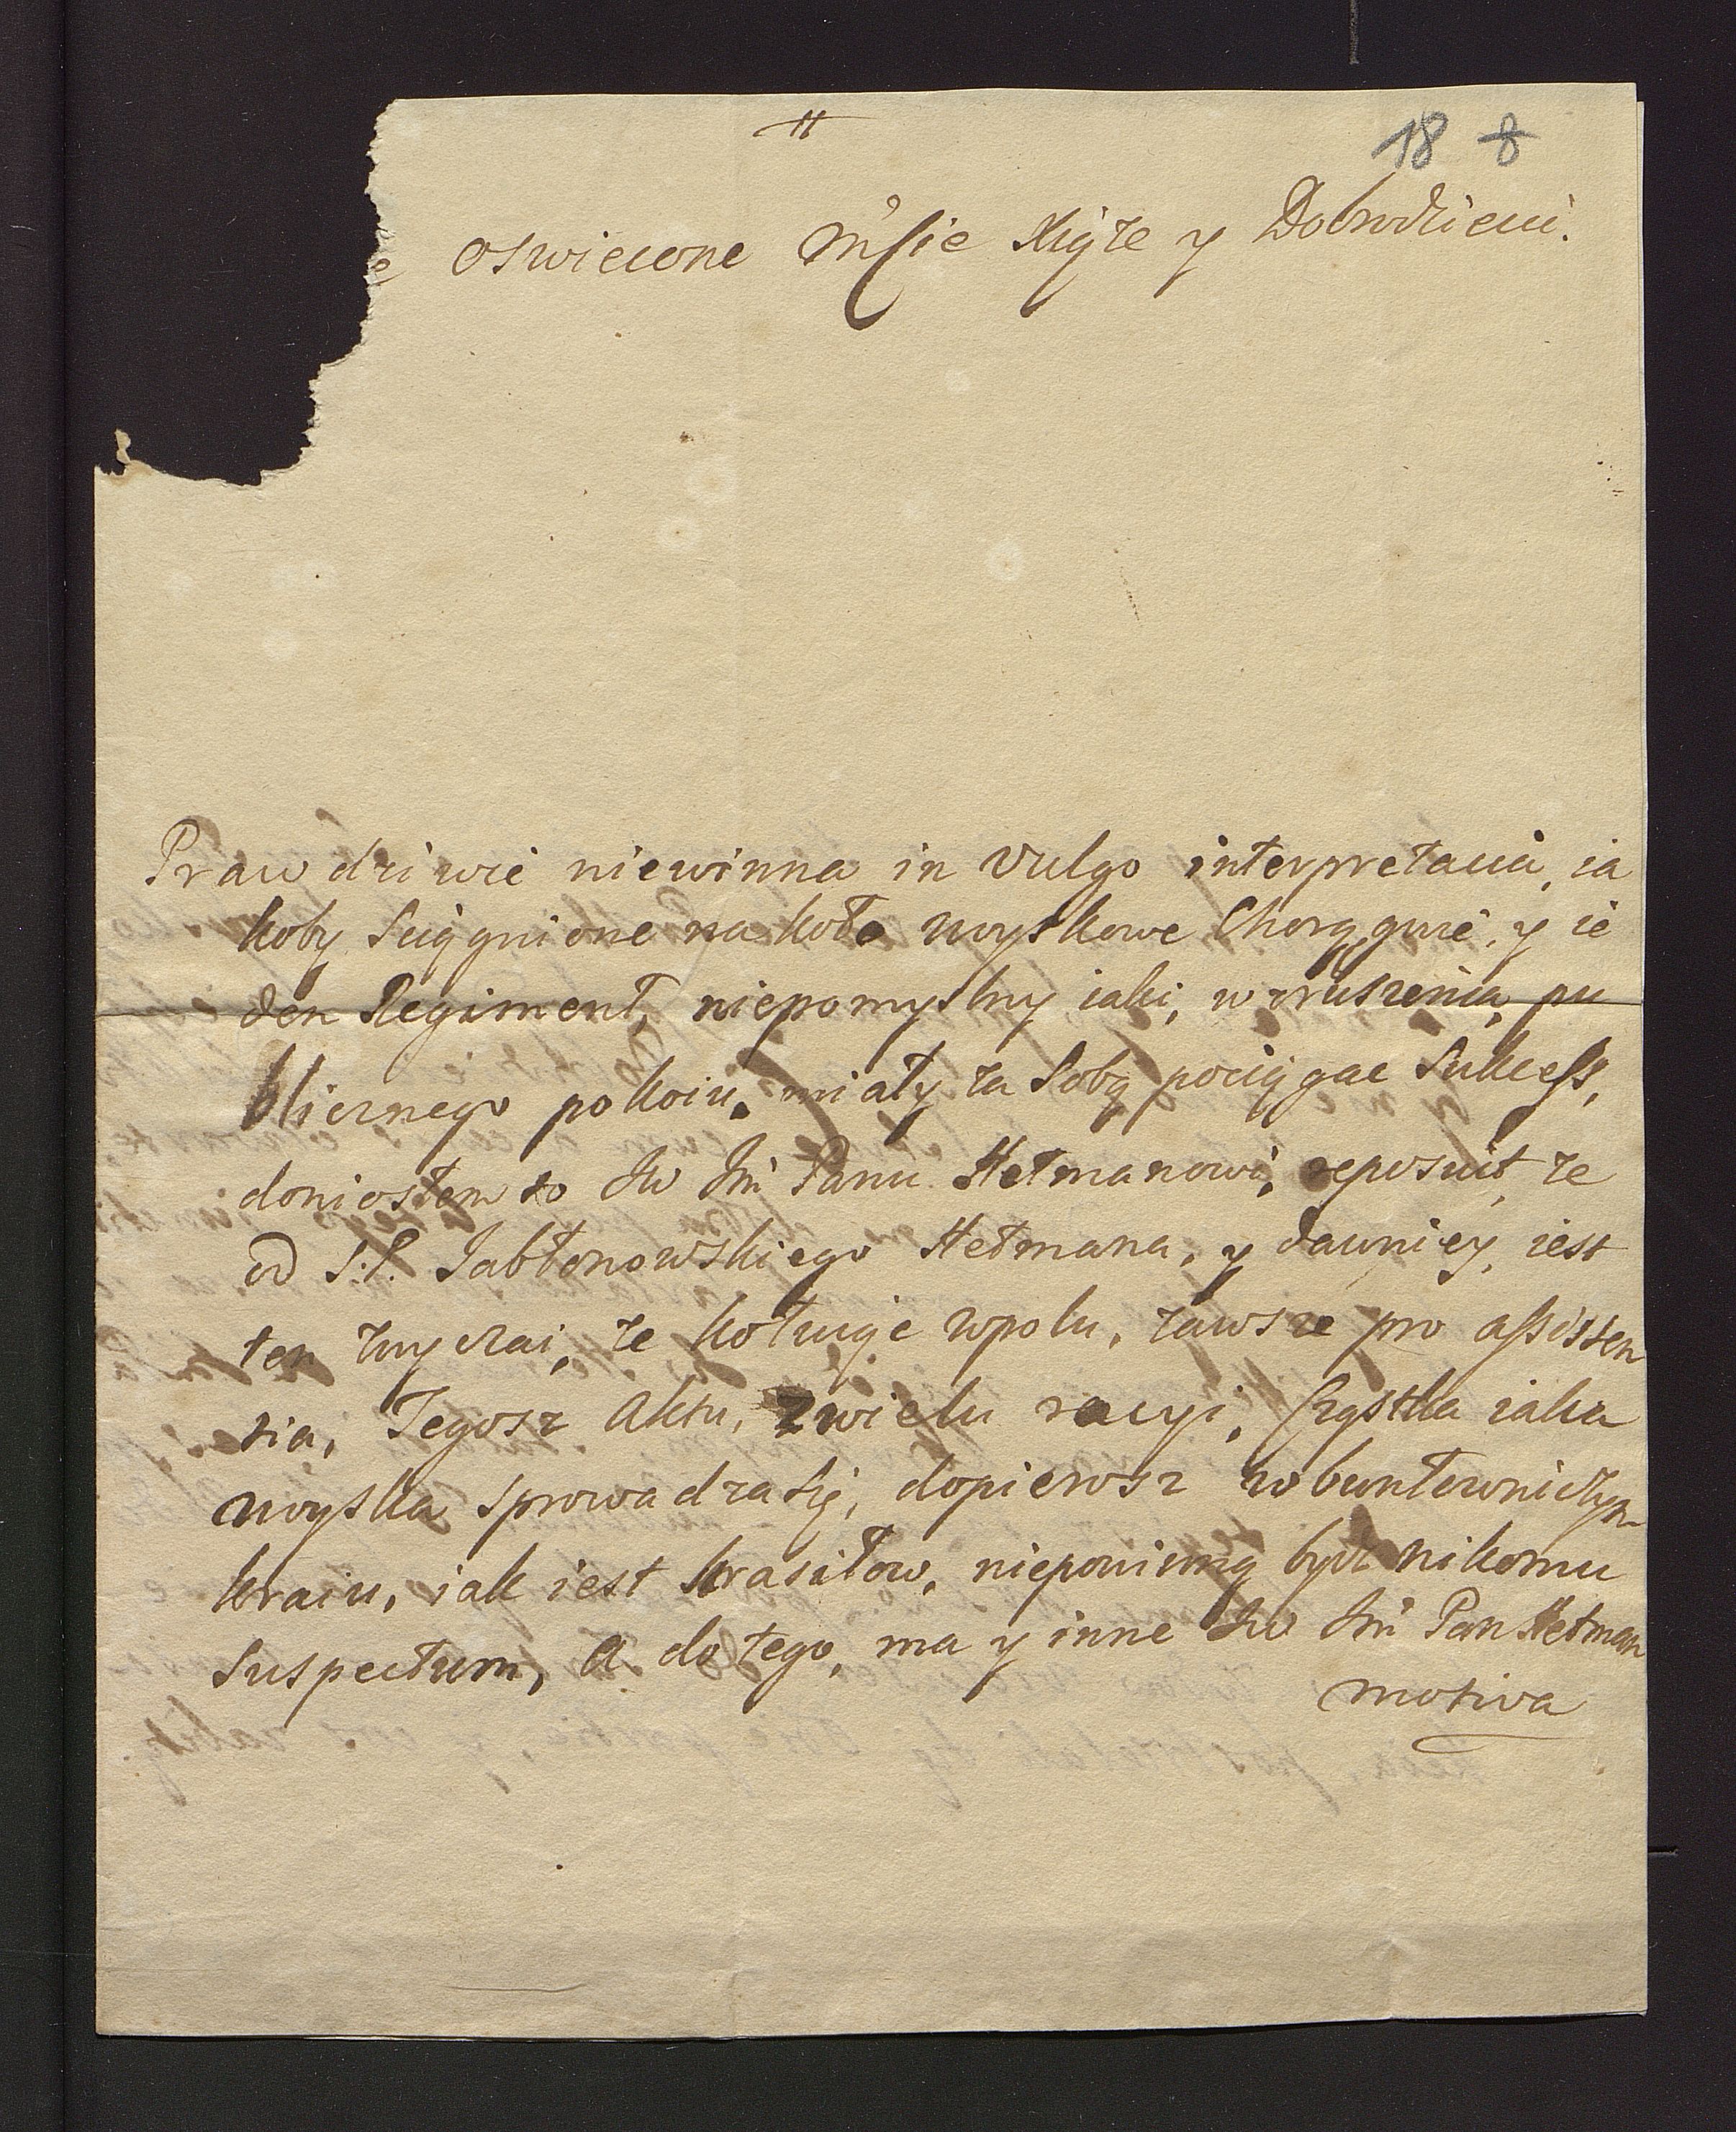 18 8
e oswiecone Mscie Xiąże y Dobrodzieiu.
Prawdziwie niewinna in vulgo interpretacia, ia
koby sciągnione na koło woyskowe Chorągwie, y ie
den Regiment, niepomyslny iaki, wzruszenia, pu
blicznego pokoiu, miały za sobą pociągac sukcess,
doniosłem to Jw Jm Panu Hetmanowi, reposuit, ze
od S.P. Jabłonowskiego Hetmana, y dawniey, iest
ten zwyczai, ze kołuiąc wpolu, zawsze pro assisten
tia, Tegosz Aktu, z wielu racyi, cząstka iaka
woyska sprowadza się, dopierosz w buntowniczym
kraiu, iak iest Krasiłow, niepowinno bydz nikomu
suspectum, A do tego, ma y inne Jw Jm Pan Hetman
motiva